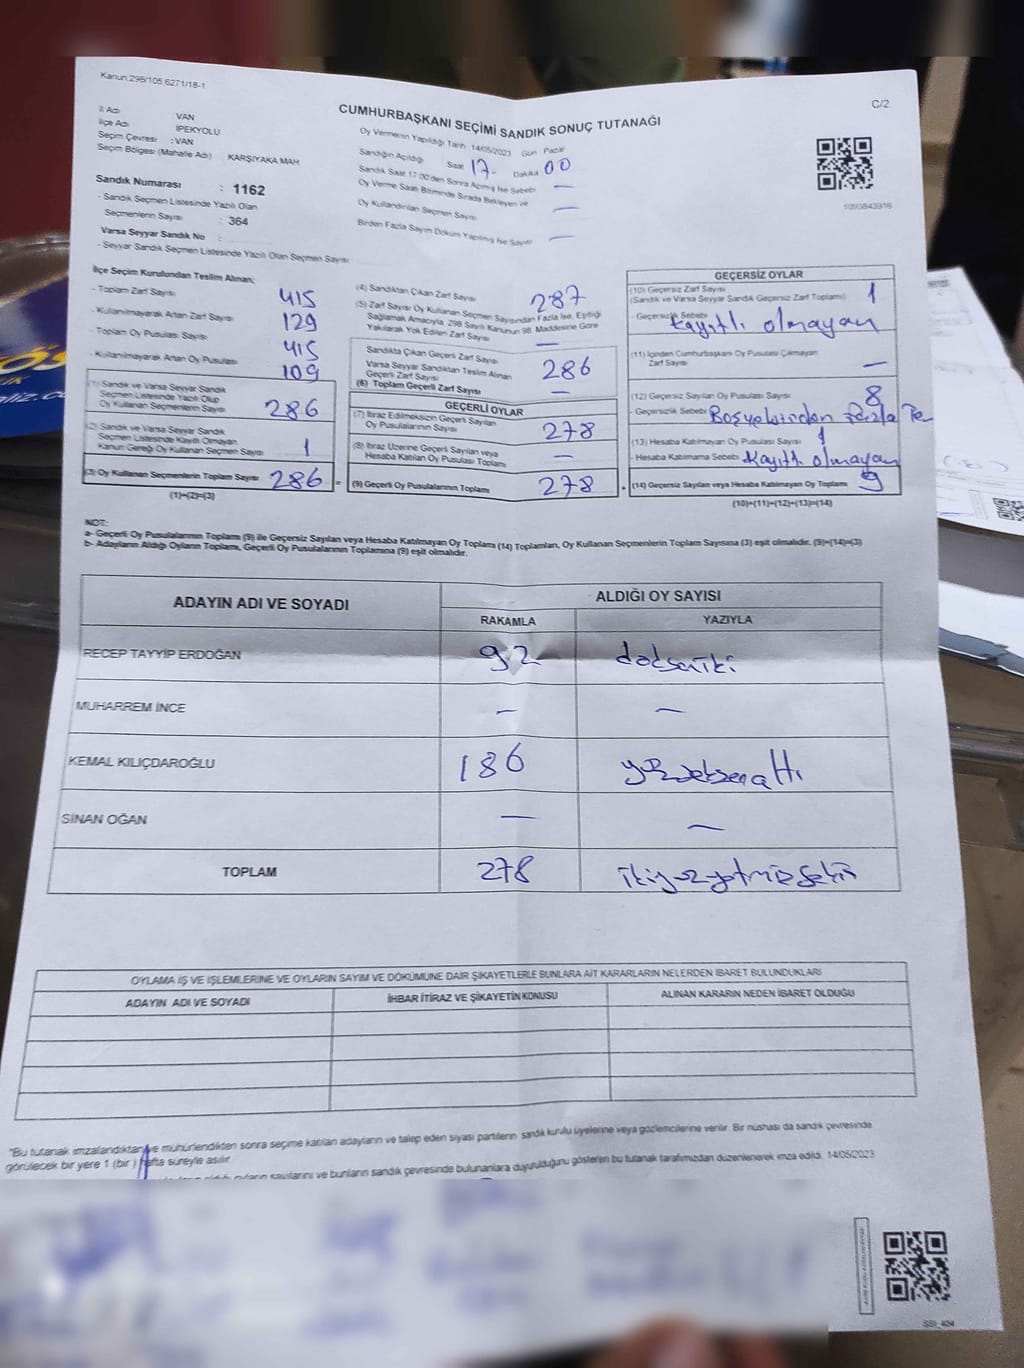 Kanun:298/105,6271/18-1
C/2
CUMHURBAŞKANI SEÇİMİ SANDIK SONUÇ TUTANAĞI
İl Adı VAN
İlçe Adı İPEKYOLU
Seçim Çevresi : VAN
Seçim Bölgesi (Mahalle Adı) KARŞIYAKA MAH
Sandık Numarası : 1162
- Sandık Seçmen Listesinde Yazılı Olan
Seçmenlerin Sayısı : 364
Varsa Seyyar Sandık No :
- Seyyar Sandık Seçmen Listesinde Yazılı Olan Seçmen Sayısı
Oy Vermenin Yapıldığı Tarih :14/05/2023 Gün : Pazar
Sandığın Açıldığı Saat 17- Dakika 00
Sandık Saat 17:00'den Sonra Açılmış İse Sebebi —
Oy Verme Saati Bitiminde Sırada Bekleyen ve
Oy Kullandırılan Seçmen Sayısı —
Birden Fazla Sayım Döküm Yapılmış İse Sayısı —
İlçe Seçim Kurulundan Teslim Alınan;
- Toplam Zarf Sayısı 415
- Kullanılmayarak Artan Zarf Sayısı 129
- Toplam Oy Pusulası Sayısı 415
- Kullanılmayarak Artan Oy Pusulası 109
(1) Sandık ve Varsa Seyyar Sandık
Seçmen Listesinde Yazılı Olup
Oy Kullanan Seçmenlerin Sayısı 286
(2) Sandık ve Varsa Seyyar Sandık
Seçmen Listesinde Kayıtlı Olmayan
Kanun Gereği Oy Kullanan Seçmen Sayısı 1
(3) Oy Kullanan Seçmenlerin Toplam Sayısı 286 =
(1)+(2)=(3)
(4) Sandıktan Çıkan Zarf Sayısı 287
(5) Zarf Sayısı Oy Kullanan Seçmen Sayısından Fazla İse, Eşitliği
Sağlamak Amacıyla, 298 Sayılı Kanunun 98. Maddesine Göre
Yakılarak Yok Edilen Zarf Sayısı —
Sandıkta Çıkan Geçerli Zarf Sayısı 286
Varsa Seyyar Sandıktan Teslim Alınan
Geçerli Zarf Sayısı
(6) Toplam Geçerli Zarf Sayısı —
GEÇERLİ OYLAR
(7) İtiraz Edilmeksizin Geçerli Sayılan
Oy Pusulalarının Sayısı 278
(8) İtiraz Üzerine Geçerli Sayılan veya
Hesaba Katılan Oy Pusulası Toplamı —
(9) Geçerli Oy Pusulalarının Toplamı 278 +
GEÇERSİZ OYLAR
(10) Geçersiz Zarf Sayısı 1
(Sandık ve Varsa Seyyar Sandık Geçersiz Zarf Toplamı)
- Geçersizlik Sebebi Kayıtlı olmayan
(11) İçinden Cumhurbaşkanı Oy Pusulası Çıkmayan
Zarf Sayısı —
(12) Geçersiz Sayılan Oy Pusulası Sayısı 8
- Geçersizlik Sebebi
(13) Hesaba Katılmayan Oy Pusulası Sayısı 1
- Hesaba Katılmama Sebebi Kayıtlı olmayan
(14) Geçersiz Sayılan veya Hesaba Katılmayan Oy Toplamı 9
(10)+(11)+(12)+(13)=(14)
NOT:
a- Geçerli Oy Pusulalarının Toplamı (9) ile Geçersiz Sayılan veya Hesaba Katılmayan Oy Toplamı (14) Toplamları, Oy Kullanan Seçmenlerin Toplam Sayısına (3) eşit olmalıdır. (9)+(14)=(3)
b- Adayların Aldığı Oyların Toplamı, Geçerli Oy Pusulalarının Toplamına (9) eşit olmalıdır.
ADAYIN ADI VE SOYADI ALDIĞI OY SAYISI
RAKAMLA YAZIYLA
RECEP TAYYİP ERDOĞAN 92 doksaniki
MUHARREM İNCE — —
KEMAL KILIÇDAROĞLU 186 yüzseksenaltı
SİNAN OĞAN — —
TOPLAM 278 ikiyüzyetmişsekiz
OYLAMA İŞ VE İŞLEMLERİNE VE OYLARIN SAYIM VE DÖKÜMÜNE DAİR ŞİKAYETLERLE BUNLARA AİT KARARLARIN NELERDEN İBARET BULUNDUKLARI
ADAYIN ADI VE SOYADI İHBAR İTİRAZ VE ŞİKAYETİN KONUSU ALINAN KARARIN NEDEN İBARET OLDUĞU
"Bu tutanak imzalandıktan ve mühürlendikten sonra seçime katılan adayların ve talep eden siyasi partilerin sandık kurulu üyelerine veya gözlemcilerine verilir. Bir nüshası da sandık çevresinde
görülecek bir yere 1 (bir ) hafta süreyle asılır.
oyların sayılarını ve bunların sandık çevresinde bulunanlara duyurulduğunu gösteren bu tutanak tarafımızdan düzenlenerek imza edildi. 14/05/2023